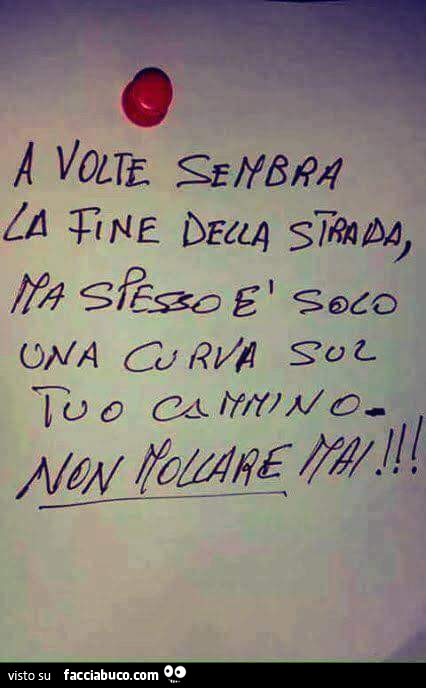 A VOLTE SEMBRA
LA FINE DELLA STRADA,
MA SPESSO E' SOLO
UNA CURVA SUL
TUO CAMMINO-
NON MOLLARE MAI!!!
visto su facciabuco.com